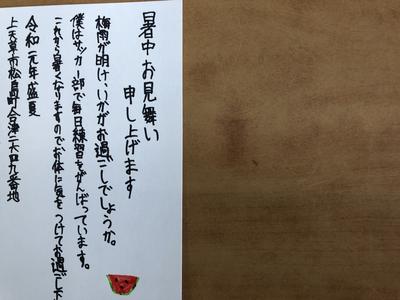 暑中お見舞い
申し上げます
梅雨が明け、いかがお過ごしでしょうか。
僕はサッカー部で毎日練習をがんばっています。
これから暑くなりますのでお体に気をつけてお過ごし下
令和元年盛夏
上天草市松島町合津二六四九番地